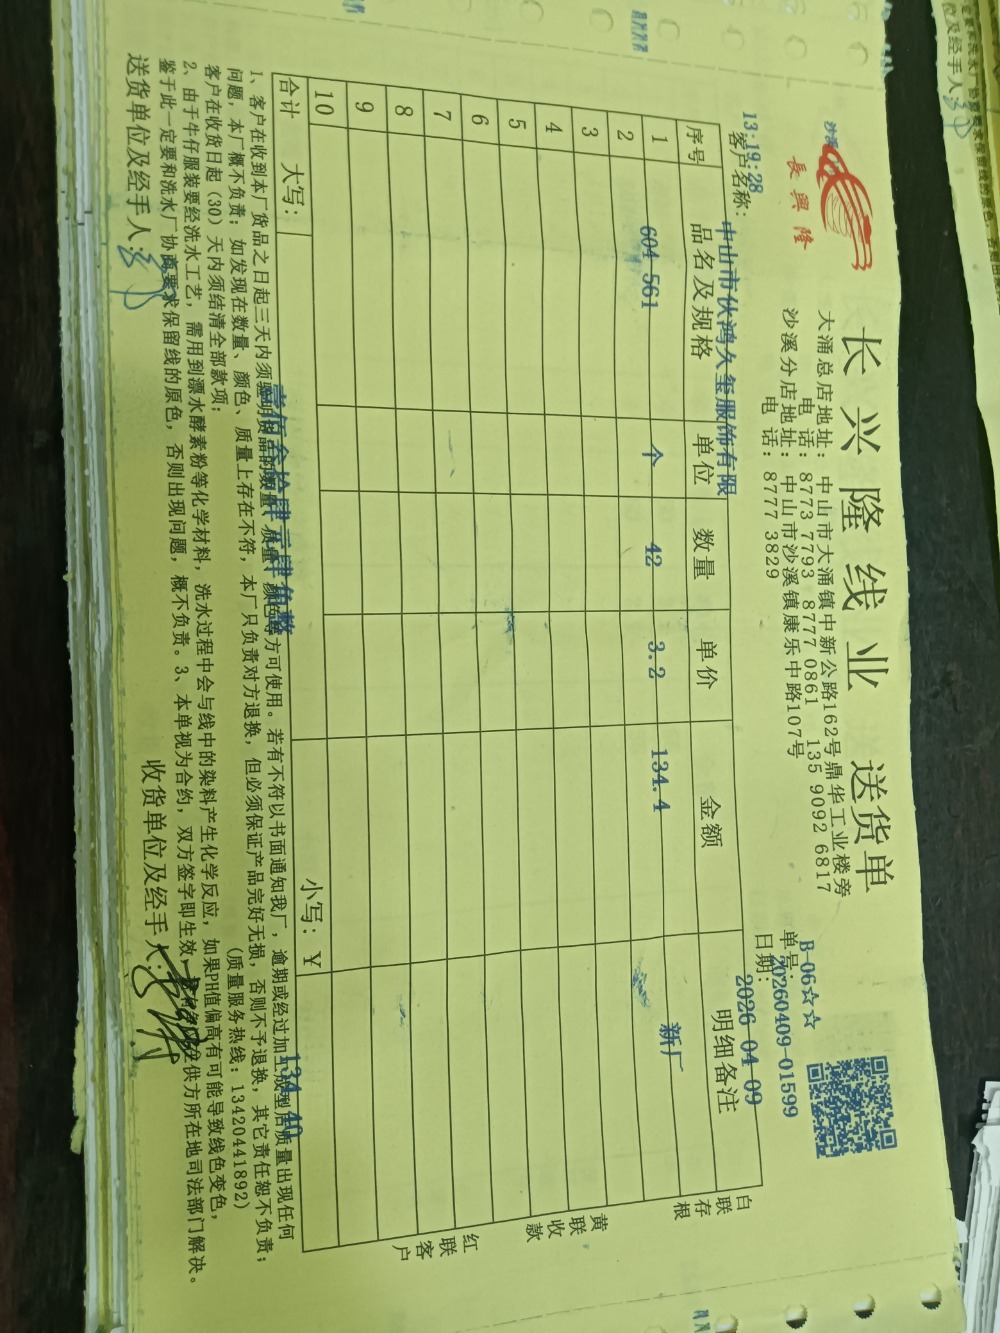 長興隆
长兴隆线业 送货单
大涌总店地址：中山市大涌镇中新公路162号鼎华工业楼旁
电话：8773 7793 8777 0861 135 9092 6817
沙溪分店地址：中山市沙溪镇康乐中路107号
电话：8777 3829
B-06☆☆
单号：20260409-01599
日期：2026-04-09
13:19:28
客户名称：中山市伙鸿久玺服饰有限
序号 品名及规格 单位 数量 单价 金额 明细备注
1 604 561 个 42 3.2 134.4 新厂
2
3
4
5
6
7
8
9
10
合计 大写：壹佰叁拾肆元肆角整 小写：￥134.40
白联存根
黄联收款
红联客户
1、客户在收到本厂货品之日起三天内须验明货品的数量、质量、颜色等方可使用。若有不符以书面通知我厂，逾期或经过加工成型后质量出现任何
问题，本厂概不负责；如发现在数量、颜色、质量上存在不符，本厂只负责对方退换，但必须保证产品完好无损，否则不予退换，其它责任恕不负责；
客户在收货日起（30）天内须结清全部款项； （质量服务热线：13420441892）
2、由于牛仔服装要经洗水工艺，需用到漂水酵素粉等化学材料，洗水过程中会与线中的染料产生化学反应，如果PH值偏高有可能导致线色变色，
鉴于此一定要和洗水厂协商要求保留线的原色，否则出现问题，概不负责。3、本单视为合约，双方签字即生效，供方所在地司法部门解决。
送货单位及经手人：
收货单位及经手人：